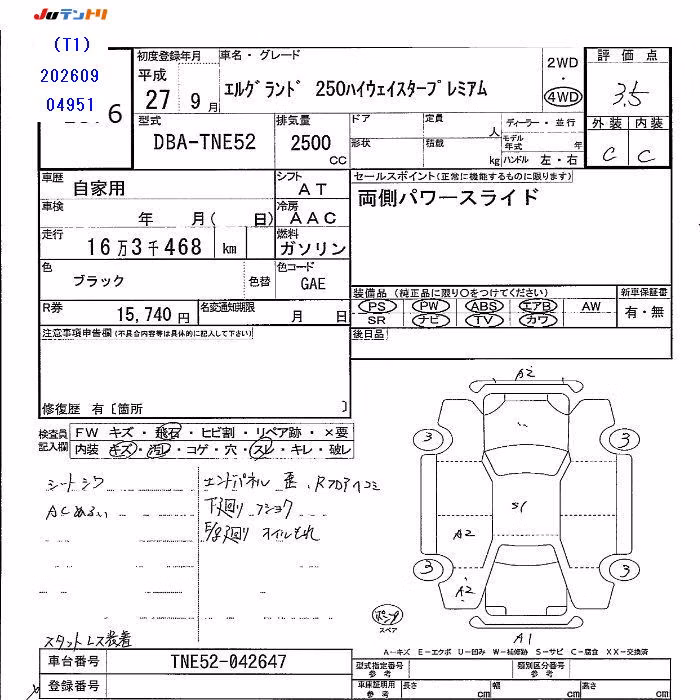 JUテントリ
(T1)
202609
04951
6
初度登録年月
平成
27 9月
車名・グレード
エルグランド 250ハイウェイスタープレミアム
2WD
・
4WD
評価点
3.5
外装 内装
C C
型式
DBA-TNE52
排気量
2500
CC
ドア
形状
定員 人
積載 kg
ディーラー・並行
モデル年式 年
ハンドル 左・右
車歴
自家用
シフト
AT
車検
年 月( 日)
冷房
AAC
走行
16万3千468 km
燃料
ガソリン
色
ブラック
色替
色コード
GAE
R券
15,740円
名変通知期限
月 日
セールスポイント(正常に機能するものに限ります)
両側パワースライド
装備品(純正品に限り○をつけてください)
PS PW ABS エアB AW
SR ナビ TV カワ
新車保証書
有・無
後日品
注意事項申告欄(不具合内容等は具体的に記入して下さい)
修復歴 有〔箇所 〕
検査員記入欄
FW キズ・飛石・ヒビ割・リペア跡・×要
内装・キズ・汚レ・コゲ・穴・スレ・キレ・破レ
シートシワ
ACぬるい
エンドパネル 歪、Rフロアヘコミ
下廻り フショク
E/g廻り オイルもれ
スタットレス装着
A2
3
3
S1
A2
3
3
A2
A1
ポンプ
スペア
A―キズ E―エクボ U―凹み W―補修跡 S―サビ C―腐食 XX―交換済
車台番号
TNE52-042647
登録番号
型式指定番号
参考
類別区分番号
参考
車庫証明用
参考
長さ cm
幅 cm
高さ cm